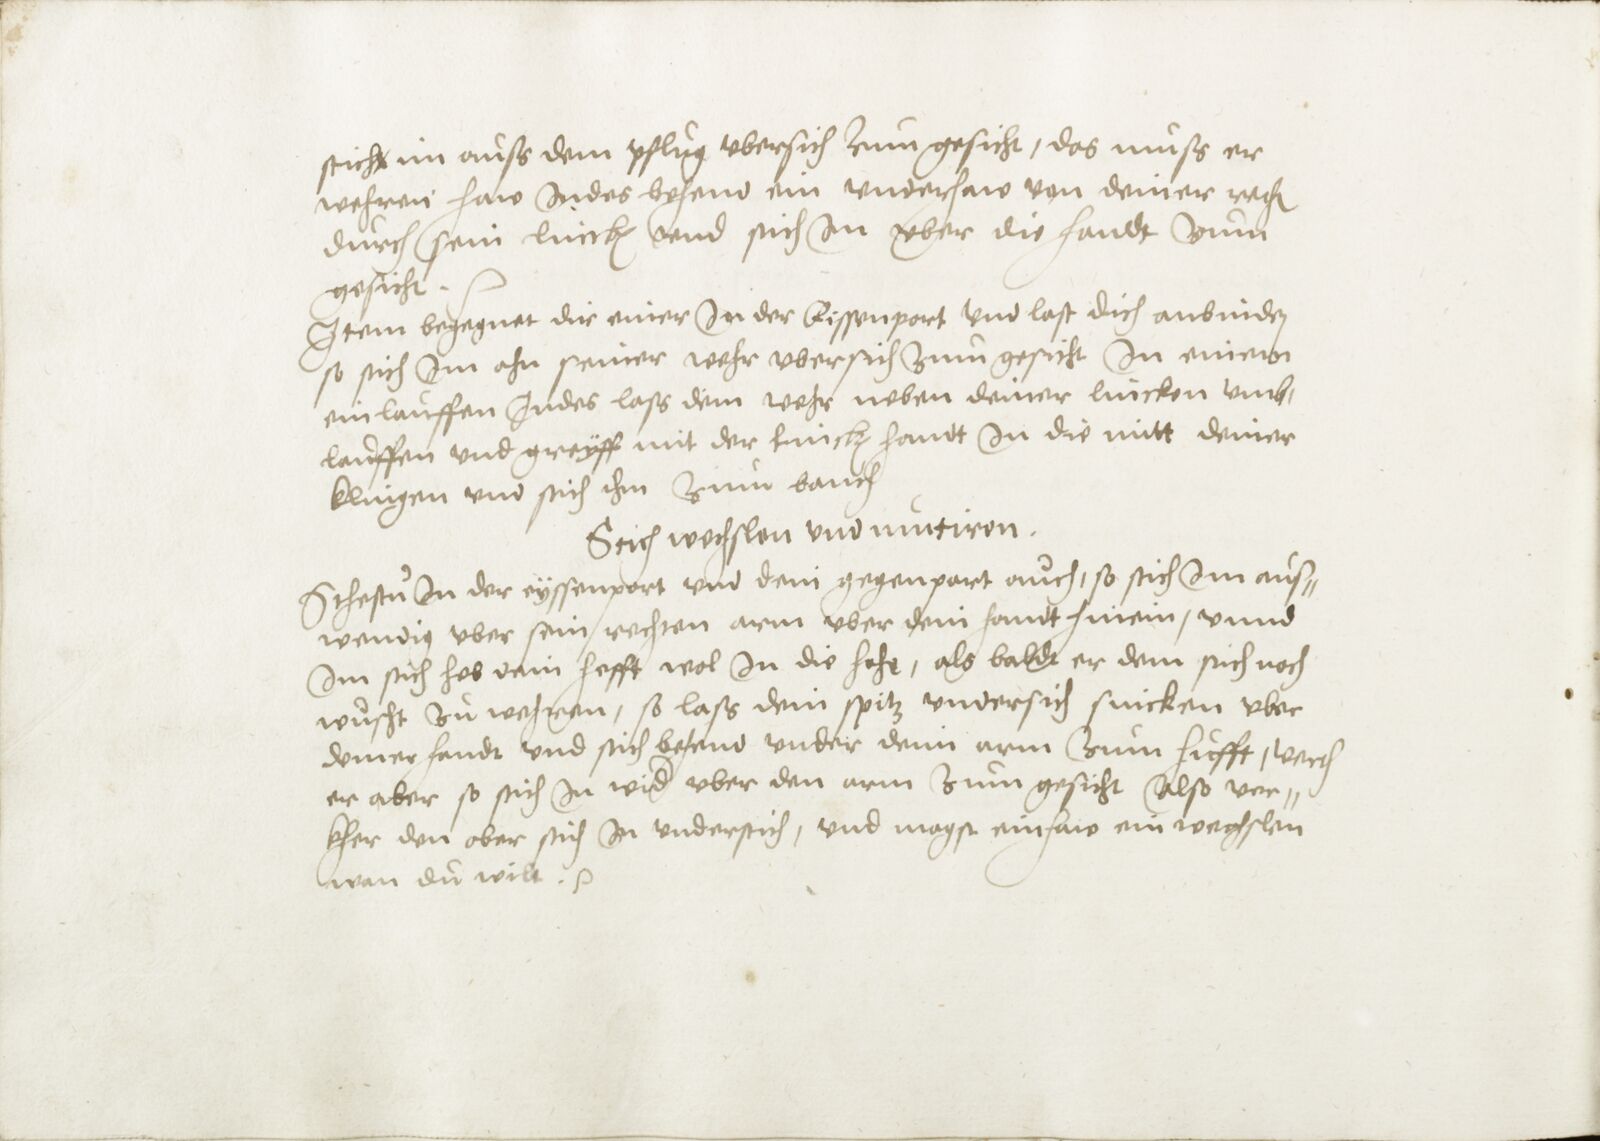 stich im auß dem pflug vbersich zum gesicht, das muß er
wehren haw Indes behend ein vnderhaw von deiner recht
durch sein linckh Vnd stich Im vber die handt zum
gesicht.
Item begegnet dir einer In der Eissenport Vnd last dich anbinden
so stich Im ahn seiner wehr vbersich zum gesicht In einem
einlauffen Indes laß dein wehr neben deiner lincken vmb,
lauffen vnd greyff mit der linckh handt In die mitt deiner
klingen vnd stich ihm zum bauch
Stich wechslen vnd mutiren.
Sthestu In der eyssenport vnd dein gegenpart auch, so stich Im aus=
wendig vber sein rechten arm vber dein handt hinein, vnnd
Im stich heb dein hefft wol In die hohe, als baldt er dem stich noch
wuscht zu wehren, so laß dein spitz vndersich sincken vber
deiner handt vnd stich behend vnder denn arm zum hufft, werth
er aber so stich In wid vber den arm zum gesicht Also ver=
kher den ober stich In vnderstich, vnd magst ein haw ein wechslen
wan du wilt.